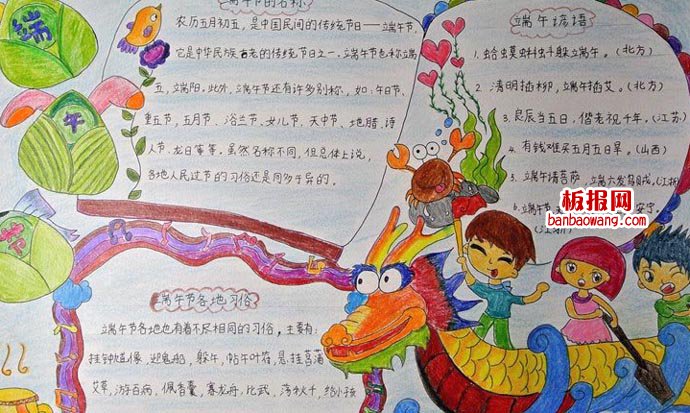 端
午
节
端午节的名称
农历五月初五，是中国民间的传统节日——端午节，
它是中华民族古老的传统节日之一。端午节也称端
五，端阳。此外，端午节还有许多别称，如：午日节、
重五节，五月节、浴兰节、女儿节，天中节、地腊、诗
人节、龙日等等。虽然名称不同，但总体上说，
各地人民过节的习俗还是同多于异的。
端午谚语
1. 蛤蟆蝌蚪躲端午。（北方）
2. 清明插柳，端午插艾。（北方）
3. 良辰当五日，偕老祝千年。（江苏）
4. 有钱难买五月五日旱。（山西）
5. 端午请菩萨，端六发
6. 端午节
板报网
banbaowang.com
端午节各地习俗
端午节各地也有着不尽相同的习俗，主要有：
挂钟馗像，迎鬼船，躲午，帖午叶符，悬挂菖蒲
艾草，游百病，佩香囊，赛龙舟，比武，荡秋千，给小孩